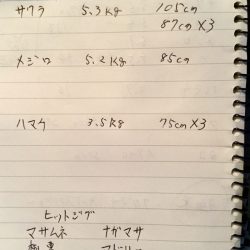 サワラ 5.3kg 105cm
87cm×3
メジロ 5.2kg 85cm
ハマチ 3.5kg 75cm×3
ヒットジグ
マサムネ ナガマサ